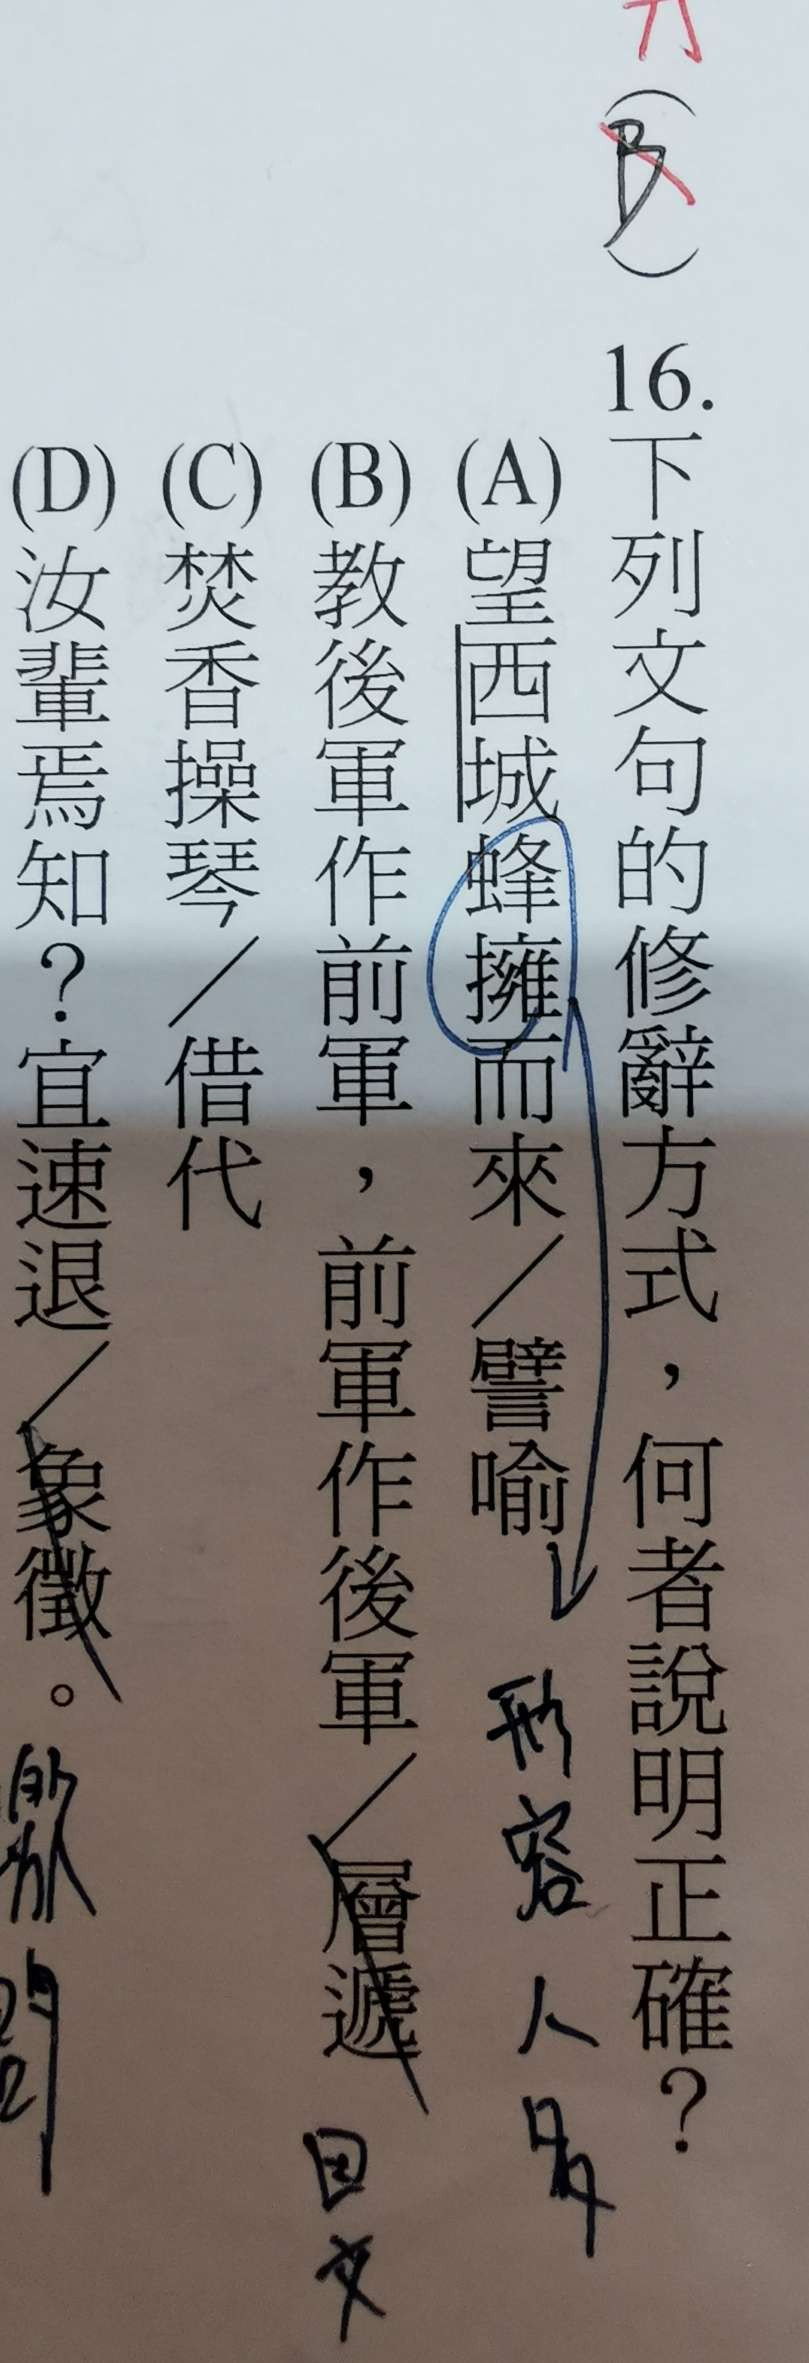 A
(B) 16.下列文句的修辭方式，何者說明正確？
(A)望西城蜂擁而來／譬喻 形容人多
(B)教後軍作前軍，前軍作後軍／層遞 回文
(C)焚香操琴／借代
(D)汝輩焉知？宜速退／象徵。激問